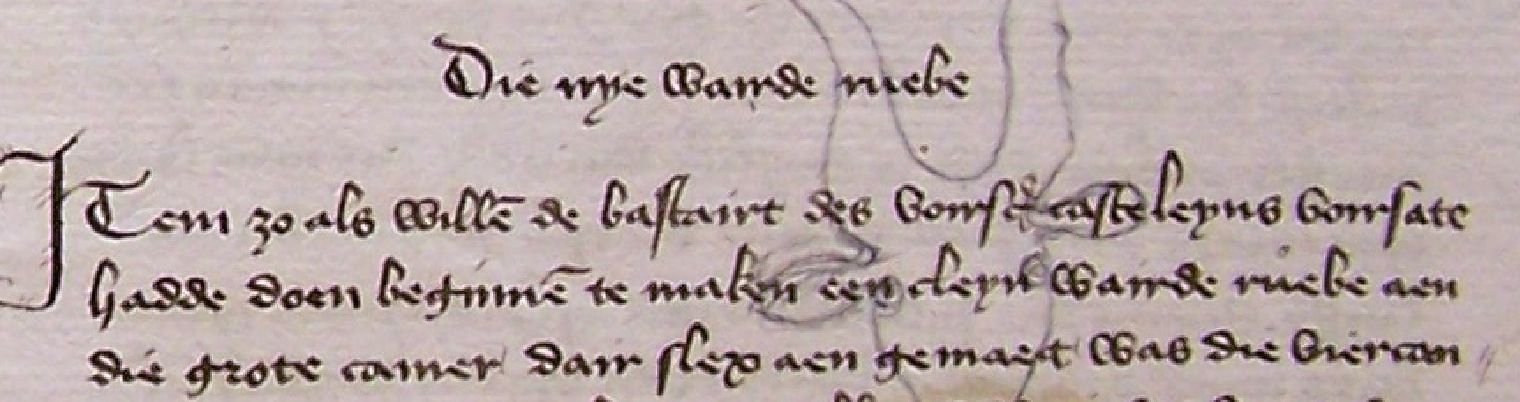 Die nye wairde riebe
ITem zo als willē de bastairt des voirscr casteleyns voirsate
hadde doen beginnē te maken een cleyn wairde riebe aen
die grote camer dair slex aen gemaect was die viercan